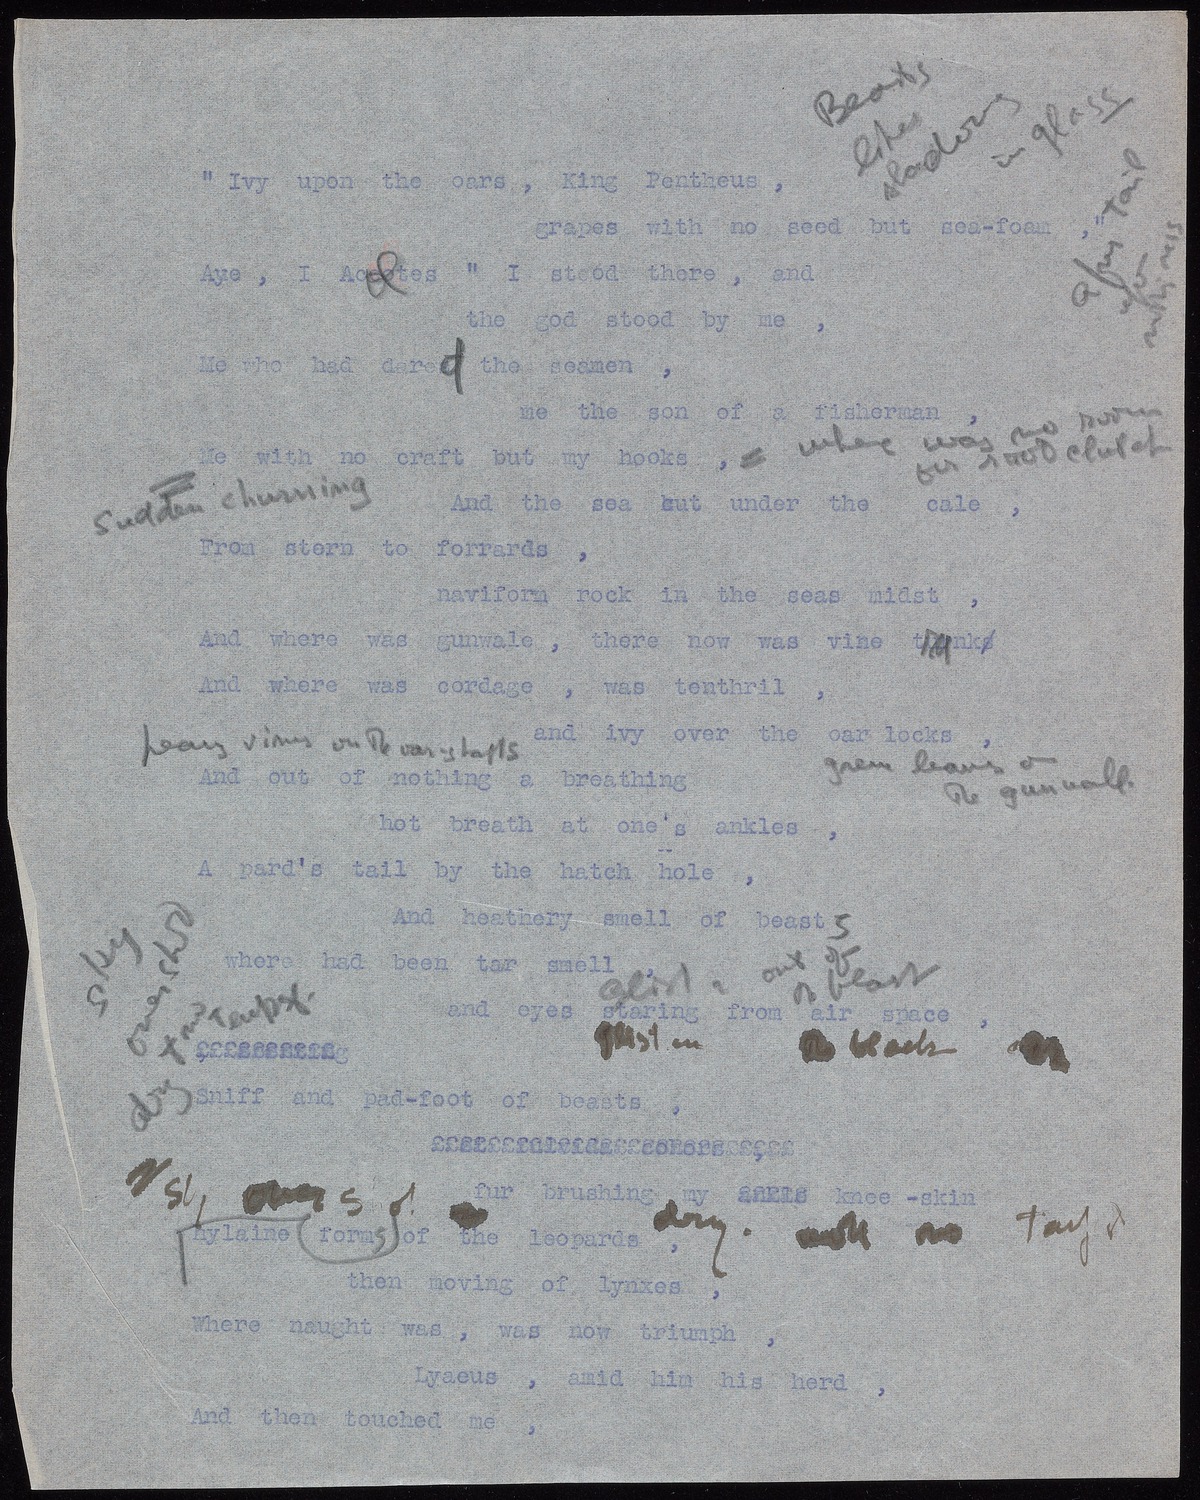 Beasts
like
shadows
in glass
" Ivy upon the oars , King Pentheus ,
grapes with no seed but sea-foam ,"
Aye , I Acoetes " I stood there , and
the god stood by me ,
Me who had dared the seamen ,
me the son of a fisherman ,
Me with no craft but my hooks ,
where was no room
Sudden churning
And the sea cut under the cale ,
From stern to forrards ,
naviform rock in the seas midst ,
And where was gunwale , there now was vine trunk
And where was cordage , was tenthril ,
and ivy over the oar locks ,
heavy vines on the
And out of nothing a breathing
green leaves on
the gunwale.
hot breath at one's ankles ,
A pard's tail by the hatch hole ,
And heathery smell of beasts
where had been tar smell ,
sky
overshot
dry
tempest.
out of
and eyes staring from air space ,
black
Sniff and pad-foot of beasts ,
fur brushing my knee -skin
hylaine forms of the leopards ,
dry.
then moving of lynxes ,
Where naught was , was now triumph ,
Lyaeus , amid him his herd ,
And then touched me ,